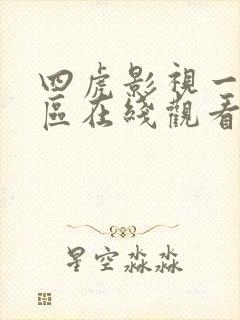 四虎影視一
區在綫觀看
星空淼淼